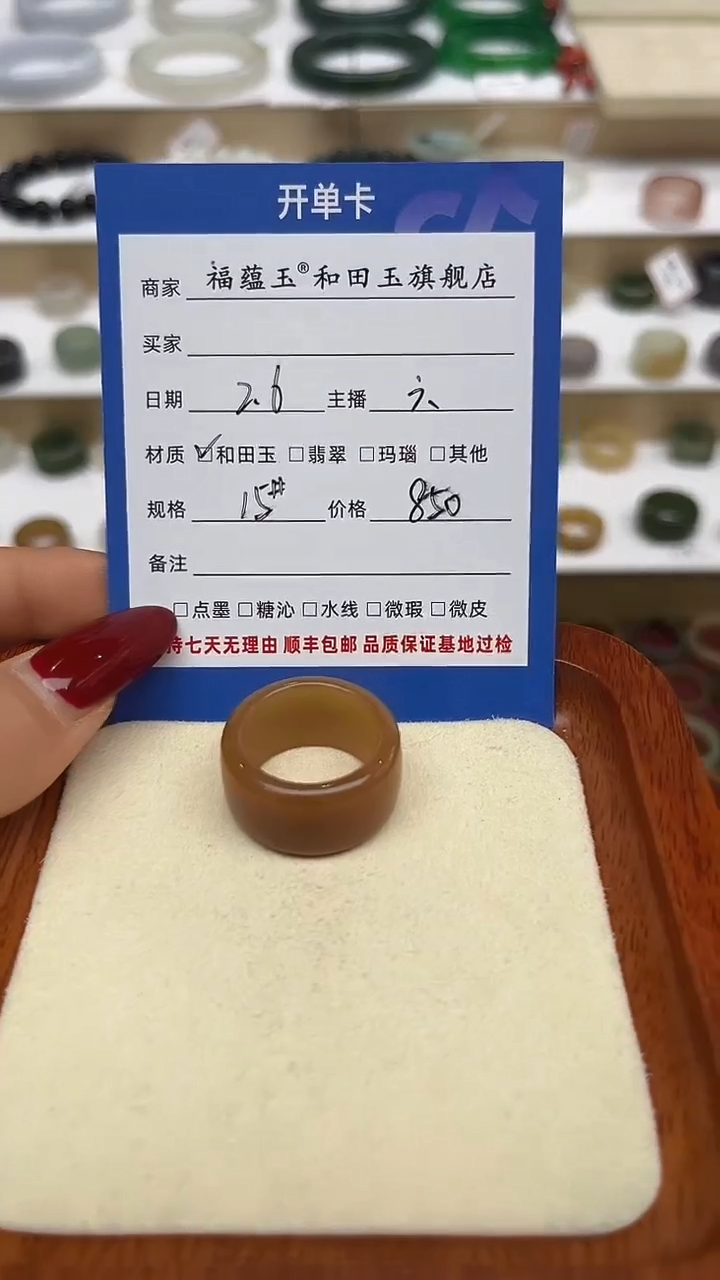 开单卡
商家 福蕴玉®和田玉旗舰店
买家
日期 2.6 主播 六
材质 ☑和田玉 □翡翠 □玛瑙 □其他
规格 15# 价格 850
备注
□点墨 □糖沁 □水线 □微瑕 □微皮
持七天无理由 顺丰包邮 品质保证基地过检